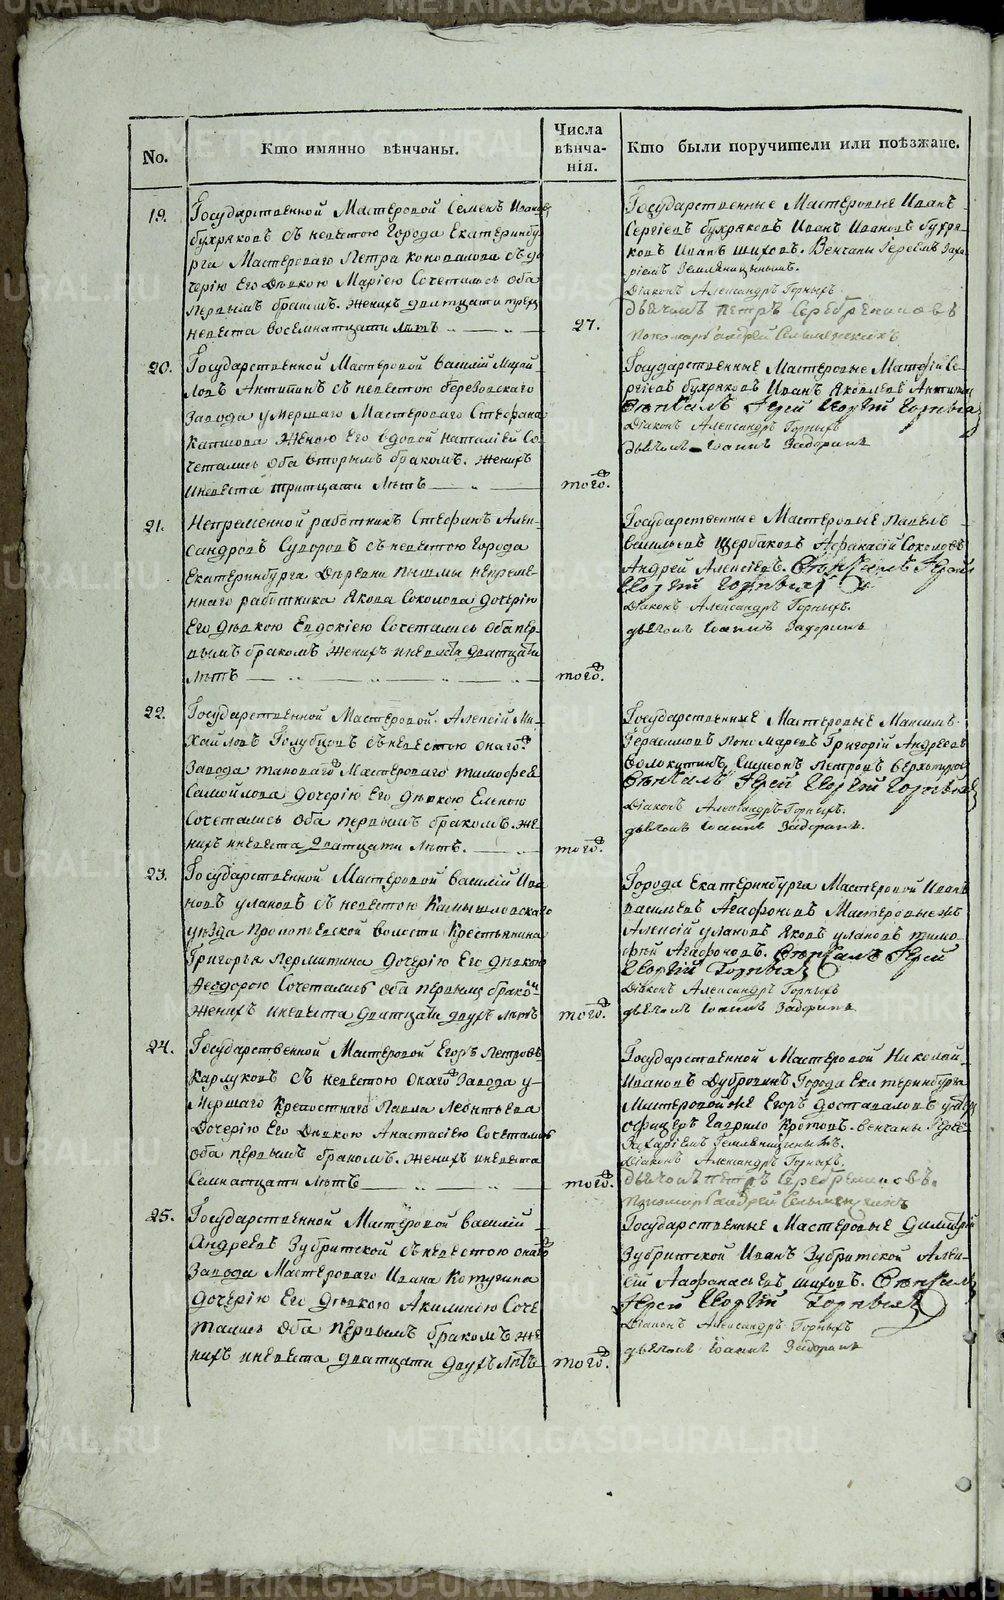 No.
Кто имянно вѣнчаны.
Числа
вѣнча-
нія.
Кто были поручители или поѣзжане.
19.
Государственной Мастеровой Семенъ Ивановъ
бухряковъ съ невестою Города Екатеринбу-
рга Мастероваго Петра коновалова съ до
черію Его Дѣвкою Маріею Сочетались оба
первымъ бракомъ. Женихъ дватцати трехъ
невеста восемнатцати лѣтъ
27.
Государственные Мастеровые Иванъ
Сергіевъ бухряковъ Иванъ Ивановъ бухря-
ковъ Иванъ шиховъ. Венчаны Іереемъ Заха
ріемъ Земляницынымъ.
Діаконъ Александръ Горныхъ.
дьячокъ петръ Серебрениковъ
пономарь андрей
20.
Государственной Мастеровой василій Михай
ловъ Антипинъ съ невестою березовскаго
Завода умершаго Мастероваго Стефана
Женою Его вдовой наталіей Со
четались оба вторымъ бракомъ. женихъ
иневеста тритцати лѣтъ
того.
Государственные Мастеровые Матфій Се
ргіевъ бухряковъ Иванъ Яковлевъ Антипин
Вѣнчалъ Іерей Георгій Горныхъ
Діаконъ Александръ Горныхъ
дьячокъ Іоаннъ Задоринъ
21.
Непременной работникъ Стефанъ Алек-
сандровъ Суворовъ съ невестою Города
Екатеринбурга Деревни пышмы непреме-
ннаго работника Якова Соколова дочерію
Его дѣвкою Евдокіею Сочетались Оба пер-
вымъ бракомъ Женихъ иневеста дватцати
лѣтъ
того.
Государственные Мастеровые Павелъ
васильевъ щербаковъ Афанасій Соколовъ
Андрей Алексіевъ. Вѣнчалъ Іерей
Георгій Горныхъ
Діаконъ Александръ Горныхъ.
дьячокъ Іоаннъ Задоринъ
22.
Государственной Мастеровой Алексій Ми-
хайловъ Голубцовъ съ невестою онаго
Завода таковаго Мастероваго тимофея
Самойлова дочерію Его дѣвкою Еленою
Сочетались оба первымъ бракомъ. же-
нихъ иневеста дватцати лѣтъ.
того.
Государственные Мастеровые Максимъ
Герасимовъ Пономаревъ Григорій Андреевъ
волокитинъ, Симеонъ Петровъ верхотуров
Вѣнчалъ Іерей Георгій Горныхъ
Діаконъ Александръ Горныхъ.
дьячокъ Іоаннъ Задоринъ.
23.
Государственной Мастеровой василій Ива
новъ улановъ съ невестою Камышловскаго
уѣзда волости Крестьянина
Григорья Пермитина дочерію Его дѣвкою
Феодорою Сочетались оба первымъ бракомъ
женихъ иневеста дватцати двухъ лѣтъ
того.
Города Екатеринбурга Мастеровой Иванъ
васильевъ Агафоновъ Мастеровыежъ
Алексій улановъ Яковъ улановъ тимо-
фѣй Агафоновъ. Вѣнчалъ Іерей
Георгій Горныхъ
Діаконъ Александръ Горныхъ
дьячокъ Іоаннъ Задоринъ
24.
Государственной Мастеровой Егоръ Петровъ
Карлуковъ съ невестою онаго Завода у-
мершаго Крепостнаго Павла Леонтьева
Дочерію Его Дѣвкою Анастасіею Сочетались
оба первымъ бракомъ. женихъ иневеста
Семнатцати лѣтъ
того.
Государственной Мастеровой Николай
Ивановъ Дубровинъ Города Екатеринбурга
Мастеровойже Егоръ доставаловъ унтеръ
офицеръ Гаврило Кротовъ. венчаны Іерее
Захаріемъ Земляницынымъ.
Діаконъ Александръ Горныхъ.
дьячокъ петръ Серебрениковъ.
пономарь андрей
25.
Государственной Мастеровой василій
Андреевъ Зубритской съ невестою онаго
Завода Мастероваго Ивана Котугина
дочерію Его дѣвкою Акилиною Соче
тались оба первымъ бракомъ же
нихъ иневеста дватцати двухъ лѣтъ
того.
Государственные Мастеровые Димитрій
Зубритской Иванъ Зубритской Алек-
сій Аафанасьевъ шиховъ. Вѣнчалъ
Іерей Георгій Горныхъ
Діаконъ Александръ Горныхъ
дьячокъ Іоаннъ Задоринъ
METRIKI.GASO-URAL.RU